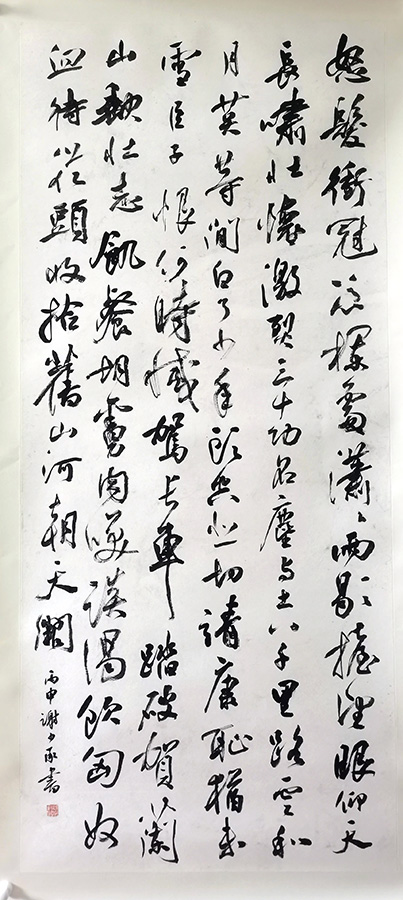 怒髮衝冠凭欄處瀟々雨歇抬望眼仰天
長嘯壯懷激烈三十功名塵与土八千里路雲和
月莫等閒白了少年頭空悲切靖康恥猶未
雪臣子恨何時滅駕長車踏破賀蘭
山缺壯志飢餐胡虜肉笑談渴飲匈奴
血待從頭收拾舊山河朝天闕
丙申謝少承書